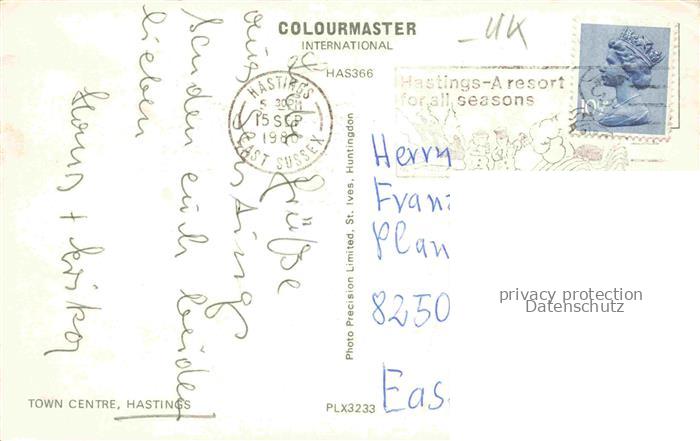 COLOURMASTER
INTERNATIONAL
HAS366
- UK
Hastings-A resort
for all seasons
HASTINGS
5 30PM
15 SEP
EAST SUSSEX
Grüße
aus Hastings
senden euch beiden
lieben
Hans + Erika
Photo Precision Limited, St. Ives, Huntingdon
Herrn
Franz
Plan
8250
Eas
privacy protection
Datenschutz
TOWN CENTRE, HASTINGS
PLX3233